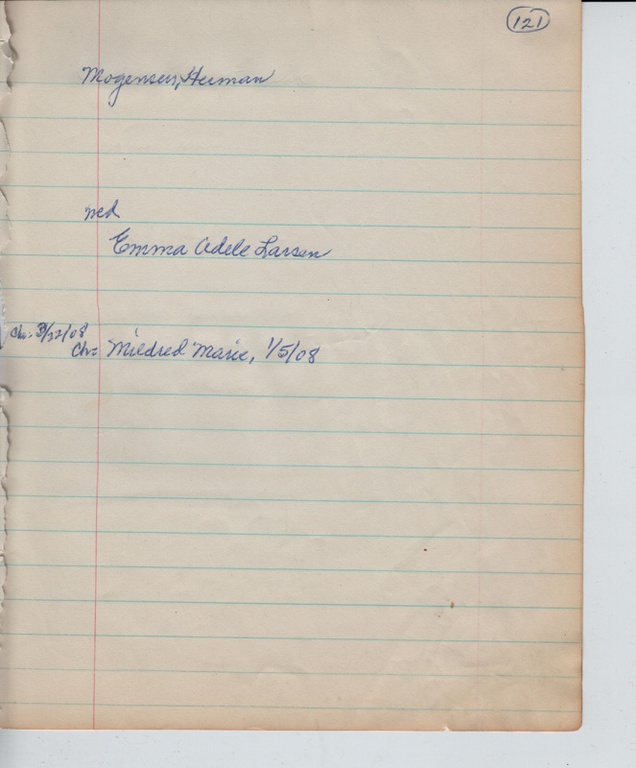 121
Mogensen, Herman
md
Emma Adele Larsen
Ch. 3/22/08
Ch: Mildred Marie, 1/5/08